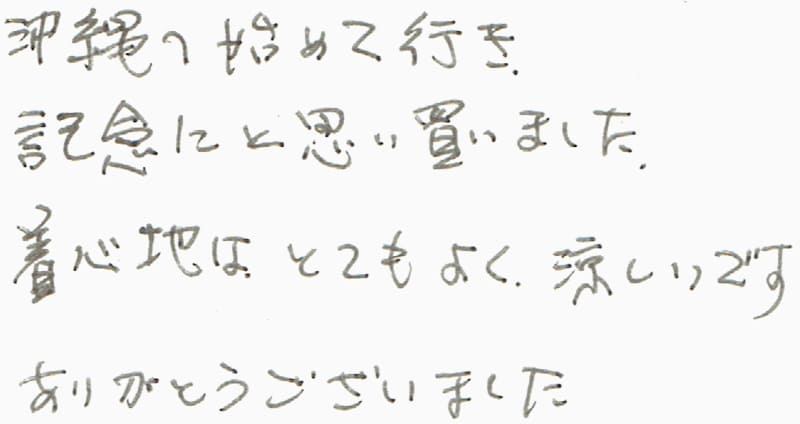 沖縄へ始めて行き、
記念にと思い買いました。
着心地はとてもよく、涼しいです
ありがとうございました